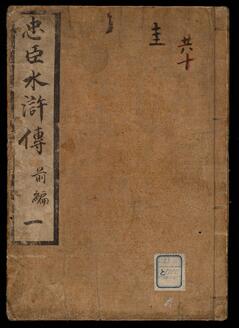 忠臣水滸傳 前編 一
圭
共十